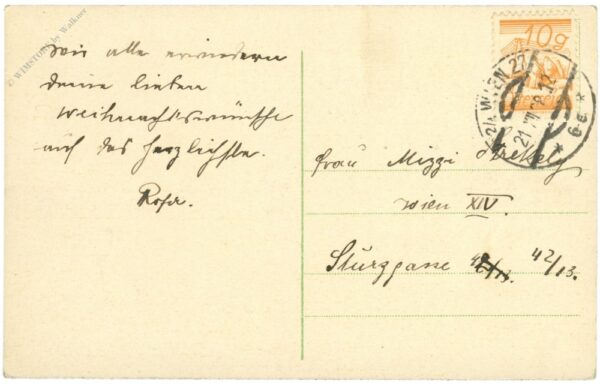 © WIMSTORE by Walkner
Wir alle erwiedern
deine lieben
Weihnachtswünsche
auf das herzlichste.
10g
24 WIEN 27
21.XII
* 6e *
Frau Mizzi
Wien XIV.
Sturzgasse 42/13.